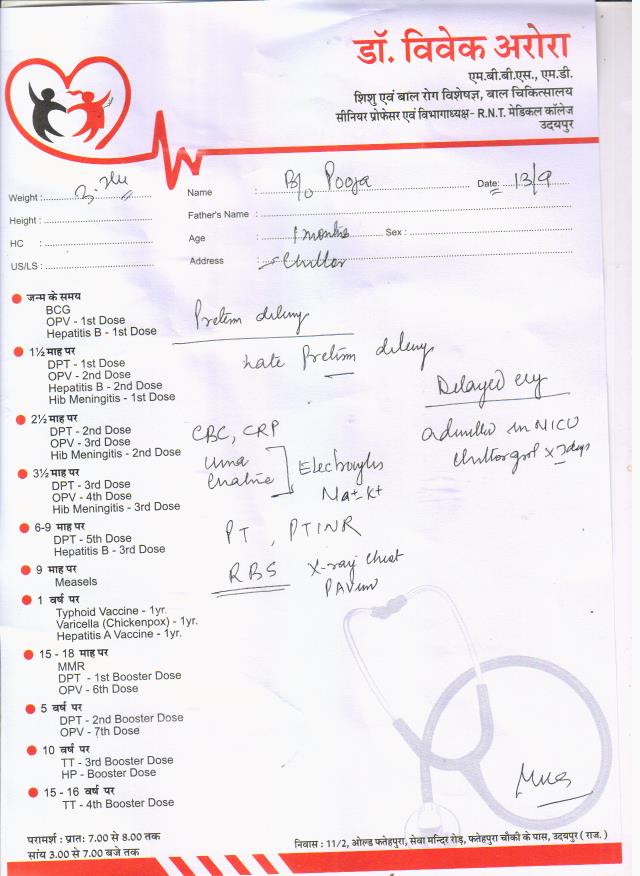 डॉ. विवेक अरोरा
एम.बी.बी.एस., एम.डी.
शिशु एवं बाल रोग विशेषज्ञ, बाल चिकित्सालय
सीनियर प्रोफेसर एवं विभागाध्यक्ष- R.N.T. मेडिकल कॉलेज
उदयपुर
Weight :
Name : B/o Pooja Date: 13/9
Height :
Father's Name :
HC :
Age : 1 months Sex :
US/LS :
Address : Chittor
जन्म के समय
BCG
OPV - 1st Dose
Hepatitis B - 1st Dose
Preterm
1½ माह पर
DPT - 1st Dose
OPV - 2nd Dose
Hepatitis B - 2nd Dose
Hib Meningitis - 1st Dose
Late Preterm
Delayed cry
admitted in NICU
Chittorgarh x
2½ माह पर
DPT - 2nd Dose
OPV - 3rd Dose
Hib Meningitis - 2nd Dose
CBC, CRP
3½ माह पर
DPT - 3rd Dose
OPV - 4th Dose
Hib Meningitis - 3rd Dose
Electrolytes
Na+ K+
6-9 माह पर
DPT - 5th Dose
Hepatitis B - 3rd Dose
PT , PTINR
9 माह पर
Measels
RBS X-ray Chest
PA View
1 वर्ष पर
Typhoid Vaccine - 1yr.
Varicella (Chickenpox) - 1yr.
Hepatitis A Vaccine - 1yr.
15 - 18 माह पर
MMR
DPT - 1st Booster Dose
OPV - 6th Dose
5 वर्ष पर
DPT - 2nd Booster Dose
OPV - 7th Dose
10 वर्ष पर
TT - 3rd Booster Dose
HP - Booster Dose
15 - 16 वर्ष पर
TT - 4th Booster Dose
परामर्श : प्रात: 7.00 से 8.00 तक
सांय 3.00 से 7.00 बजे तक
निवास : 11/2, ओल्ड फतेहपुरा, सेवा मन्दिर रोड़, फतेहपुरा चौकी के पास, उदयपुर ( राज. )